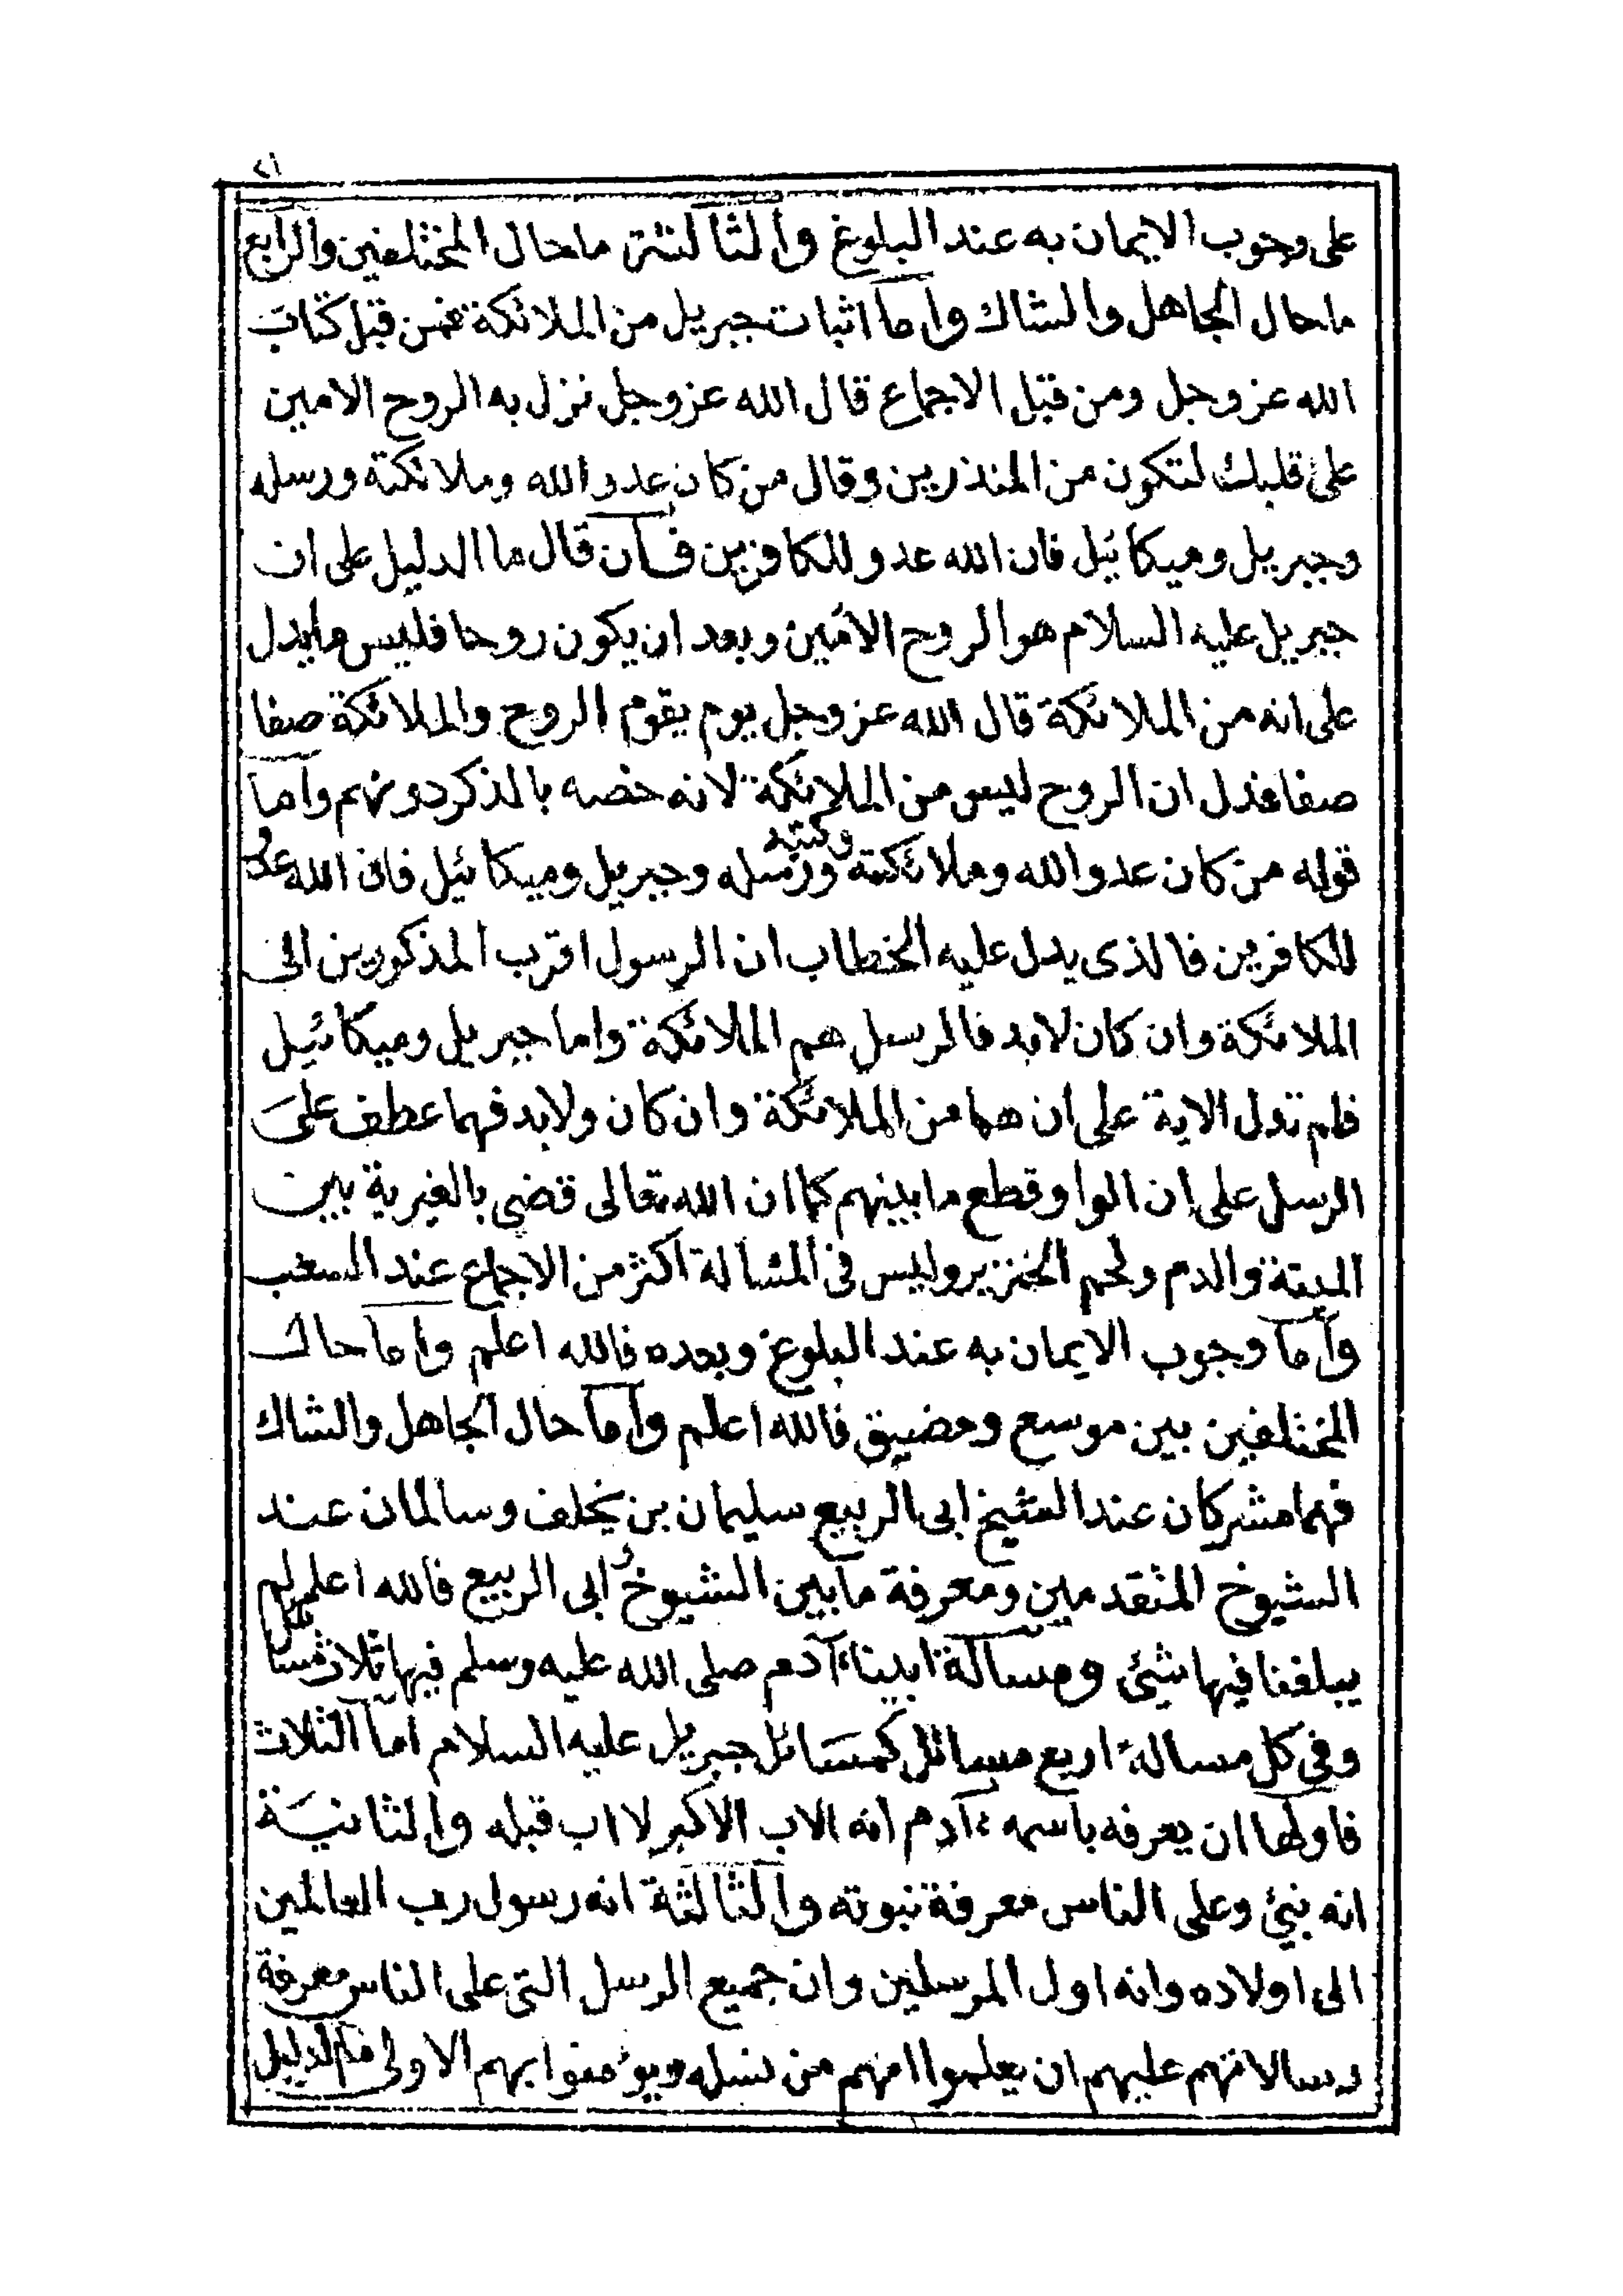 ٢١
على وجوب الايمان به عند البلوغ والثالثة ما حال المختلفين والرابع
ما حال الجاهل والشاك واما اثبات جبريل من الملائكة فمن قبل كتاب
الله عز وجل ومن قبل الاجماع قال الله عز وجل نزل به الروح الامين
على قلبك لتكون من المنذرين وقال من كان عدوا لله وملائكته ورسله
وجبريل وميكائيل فان الله عدو للكافرين فان قال ما الدليل على ان
جبريل عليه السلام هو الروح الامين وبعد ان يكون روحا فليس ما يدل
على انه من الملائكة قال الله عز وجل يوم يقوم الروح والملائكة صفا
صفا فدل ان الروح ليس من الملائكة لانه خصه بالذكر دونهم واما
قوله من كان عدوا لله وملائكته وكتبه ورسله وجبريل وميكائيل فان الله عدو
للكافرين فالذى يدل عليه الخطاب ان الرسول اقرب المذكورين الى
الملائكة وان كان لابد فالرسل هم الملائكة واما جبريل وميكائيل
فلم تدل الاية على ان هما من الملائكة وان كان ولابد فهما عطف على
الرسل على ان الواو قطع ما بينهم كما ان الله تعالى قضى بالغيرية بين
الميتة والدم ولحم الخنزير وليس فى المسالة اكثر من الاجماع عند
واما وجوب الايمان به عند البلوغ وبعده فالله اعلم واما حال
المختلفين بين موسع ومضيق فالله اعلم واما حال الجاهل والشاك
فهما مشركان عند الشيخ ابى الربيع سليمان بن يخلف وسالمان عند
الشيوخ المتقدمين ومعرفة ما بين الشيوخ وابى الربيع فالله اعلم لم
يبلغنا فيها شيئ ومسالة ابينا ءآدم صلى الله عليه وسلم فيها ثلاث مسائل
وفى كل مسالة اربع مسائل كمسائل جبريل عليه السلام اما الثلاث
فاولها ان يعرفه باسمه ءآدم انه الاب الاكبر لا اب قبله والثانية
انه نبئ وعلى الناس معرفة نبوته والثالثة انه رسول رب العالمين
الى اولاده وانه اول المرسلين وان جميع الرسل التى على الناس معرفة
رسالاتهم عليهم ان يعلموا انهم من نسله ويؤمنوا بهم الاولى ما الدليل